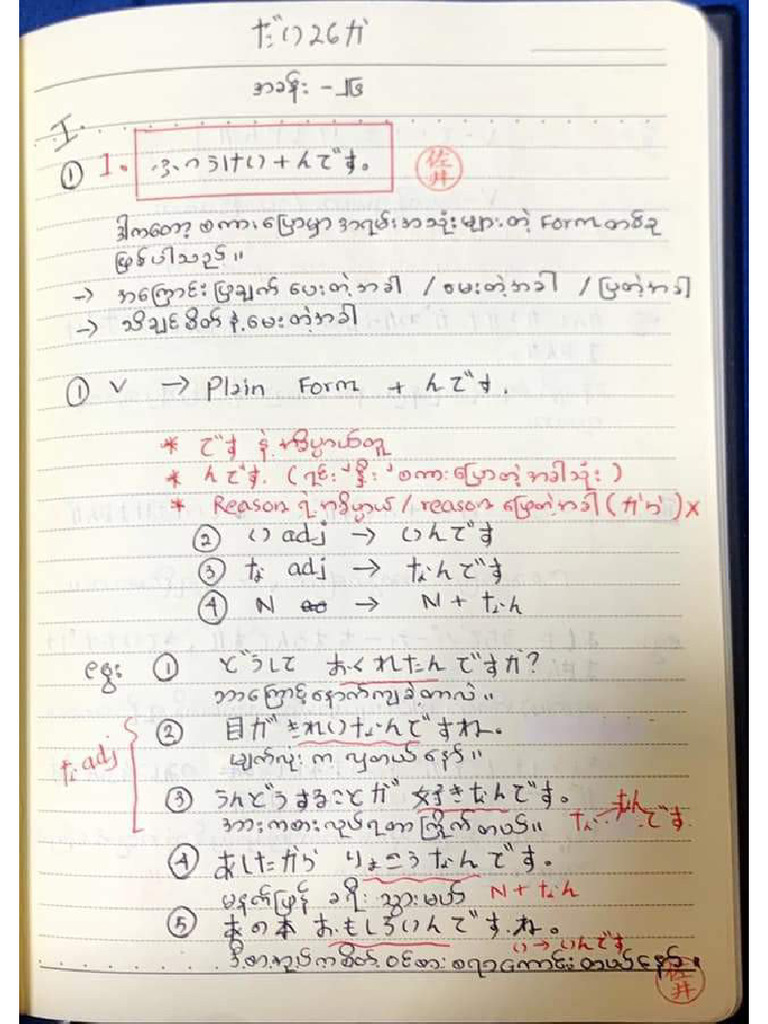 だい26か
အခန်း - ၂၆
I.
① 1. ふつうけい + んです。 佐井
ဒါကတော့ စကားပြောမှာ အရမ်းအသုံးများတဲ့ Form တစ်ခု
ဖြစ်ပါသည်။
→ အကြောင်းပြချက် ပေးတဲ့အခါ / မေးတဲ့အခါ / ပြတဲ့အခါ
→ သိချင်စိတ် နဲ့ မေးတဲ့အခါ
① V → Plain Form + んです.
* です နဲ့ အဓိပ္ပာယ်တူ
* んです. (ရင်းနှီး စကားပြောတဲ့ အခါသုံး)
* Reason ရဲ့ အဓိပ္ပာယ် / reason ဖြေတဲ့အခါ (から) x
② い adj → いんです
③ な adj → なんです
④ N → N + なん
ဥေး ① どうして おくれたんですか?
ဘာကြောင့် နောက်ကျခဲ့တာလဲ။
な adj
② 目が きれいなんですね。
မျက်လုံး က လှတယ် နော်။
③ うんどうすることが 好きなんです。
အားကစားလုပ်ရတာ ကြိုက် တယ်။ な → なんです
④ あしたから りょこうなんです。
မနက်ဖြန် ခရီး သွားမယ် N + なん
⑤ あの本 おもしろいんですね。
い → いんです
ဒီစာအုပ်က စိတ်ဝင်စား စရာကောင်းတယ်နော်။
佐井